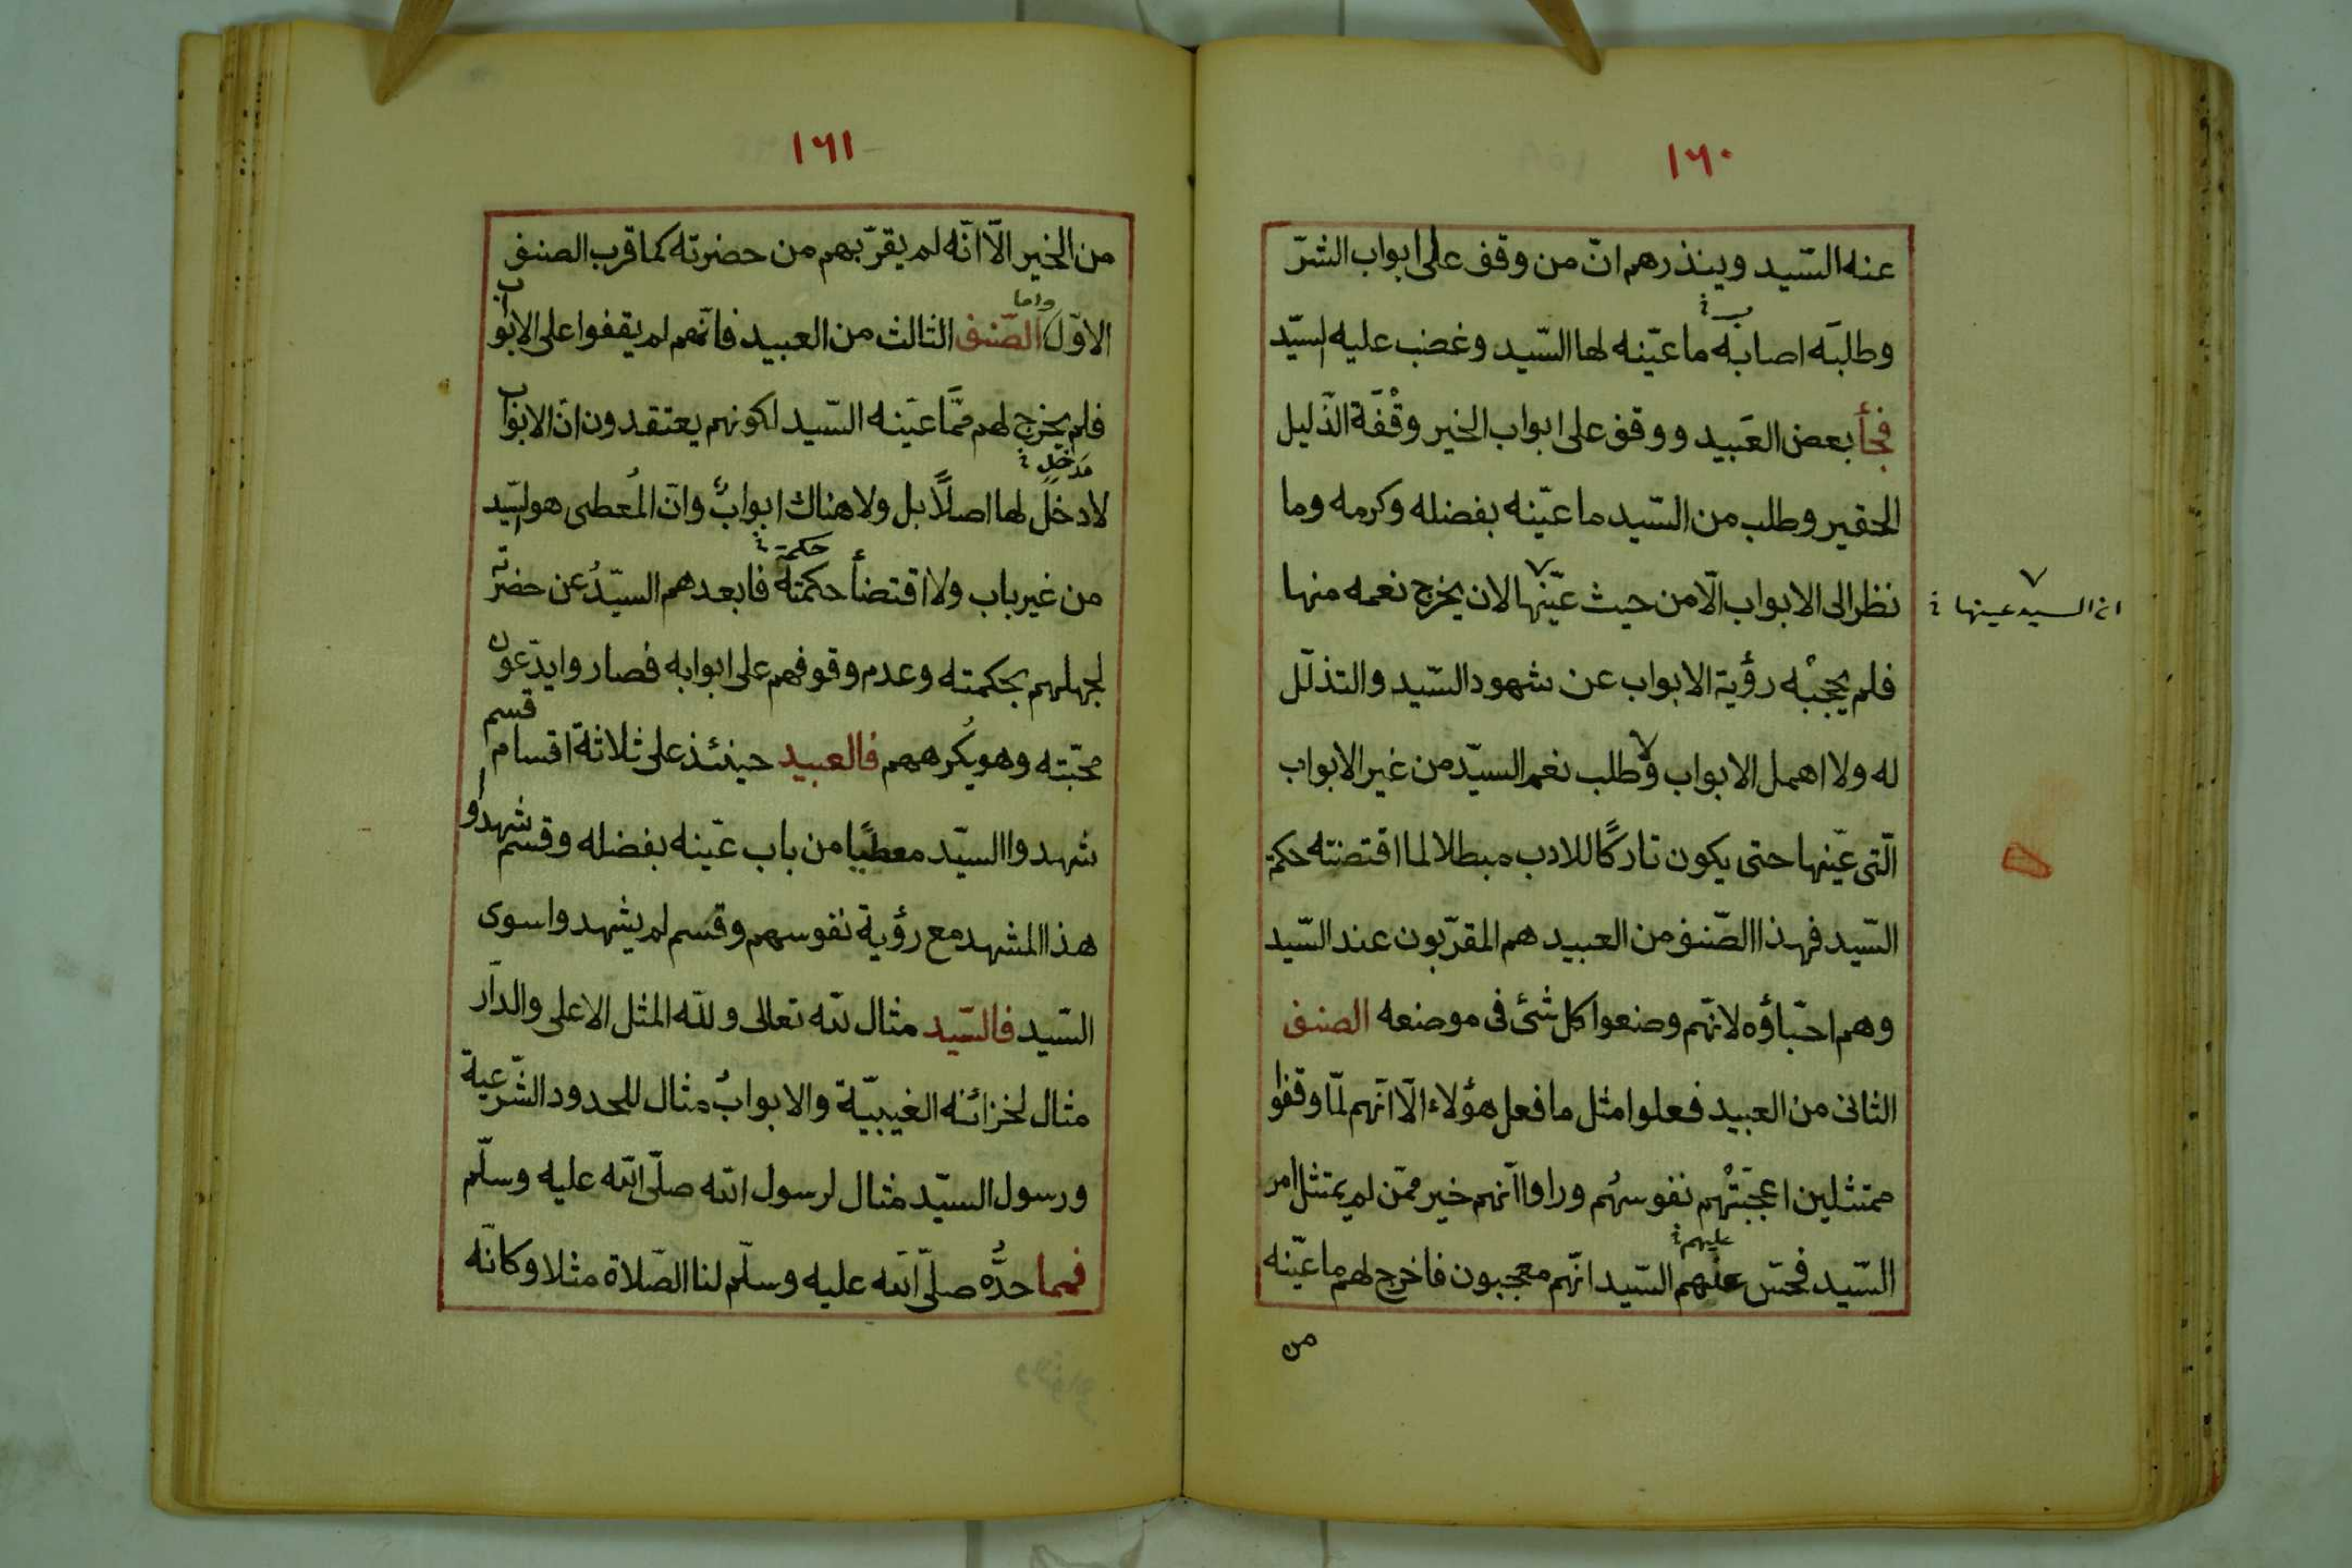 ١٦٠
عنه السّيد وينذرهم انّ من وقف على ابواب الشرّ
وطلبَه اصابه ما عيّنه لها السّيد وغضب عليه السّيّد
فجأ بعض العَبيد ووقف على ابواب الخير وقْفَة الذّليل
الحقير وطلب من السّيد ما عيّنه بفضله وكرمه وما
نظر الى الابواب الّا من حيث عيّنها لان يخرج نعمه منها
ان السيد عينها
فلم يحجبْه رؤية الابواب عن شهود السّيد والتذلّل
له ولا اهمل الابواب ولا طلب نعم السيّد من غير الابواب
الّتى عيّنها حتى يكون تاركًا للادب مبطلا لما اقتضته حكمة
السّيد فهذا الصّنف من العبيد هم المقرّبون عند السّيد
وهم احبّاؤه لانّهم وضعوا كل شئ فى موضعه الصنف
الثانى من العبيد فعلوا مثل ما فعل هؤلاء الّا انّهم لمّا وقفوا
ممتثلين اعجبَتْهم نفوسهُم وراوا انّهم خير ممّن لم يمتثل امر
عليهم
السّيد فحسّ عنهم السّيد انّهم معجبون فاخرج لهم ما عيّنه
من
١٦١
من الخير الّا انّه لم يقرّبهم من حضرته كما قرب الصنف
واما
الاوّل الصّنف الثالث من العبيد فانّهم لم يقفوا على الابواب
فلم يخرج لهم ممَّا عيَنه السّيد لكونهم يعتقدون انّ الابواب
مَدخل
لا دخلٌ لها اصلاً بل ولا هناك ابوابٌ وانّ المُعطى هو السّيد
حكمة
من غير باب ولا اقتضأ حكمته فابعدهم السيّدُ عن حضرته
لجهلهم بحكمته وعدم وقوفهم على ابوابه فصاروا يدّعون
محبّته وهو يُكرههم فالعبيد حينئذ على ثلاثة اقسام قسم
شهدوا السيّد معطيًا من باب عيّنه بفضله وقسم شهدوا
هذا المشهد مع رؤية نفوسهم وقسم لم يشهدوا سوى
السّيد فالسّيد مثال لله تعالى ولله المثل الاعلى والدّار
مثال لخزائنه الغيبيّة والابوابُ مثال للحدود الشّرعية
ورسول السيّد مثال لرسول الله صلّى الله عليه وسلّم
فمما حدَّه صلّى الله عليه وسلّم لنا الصّلاة مثلا وكانّه